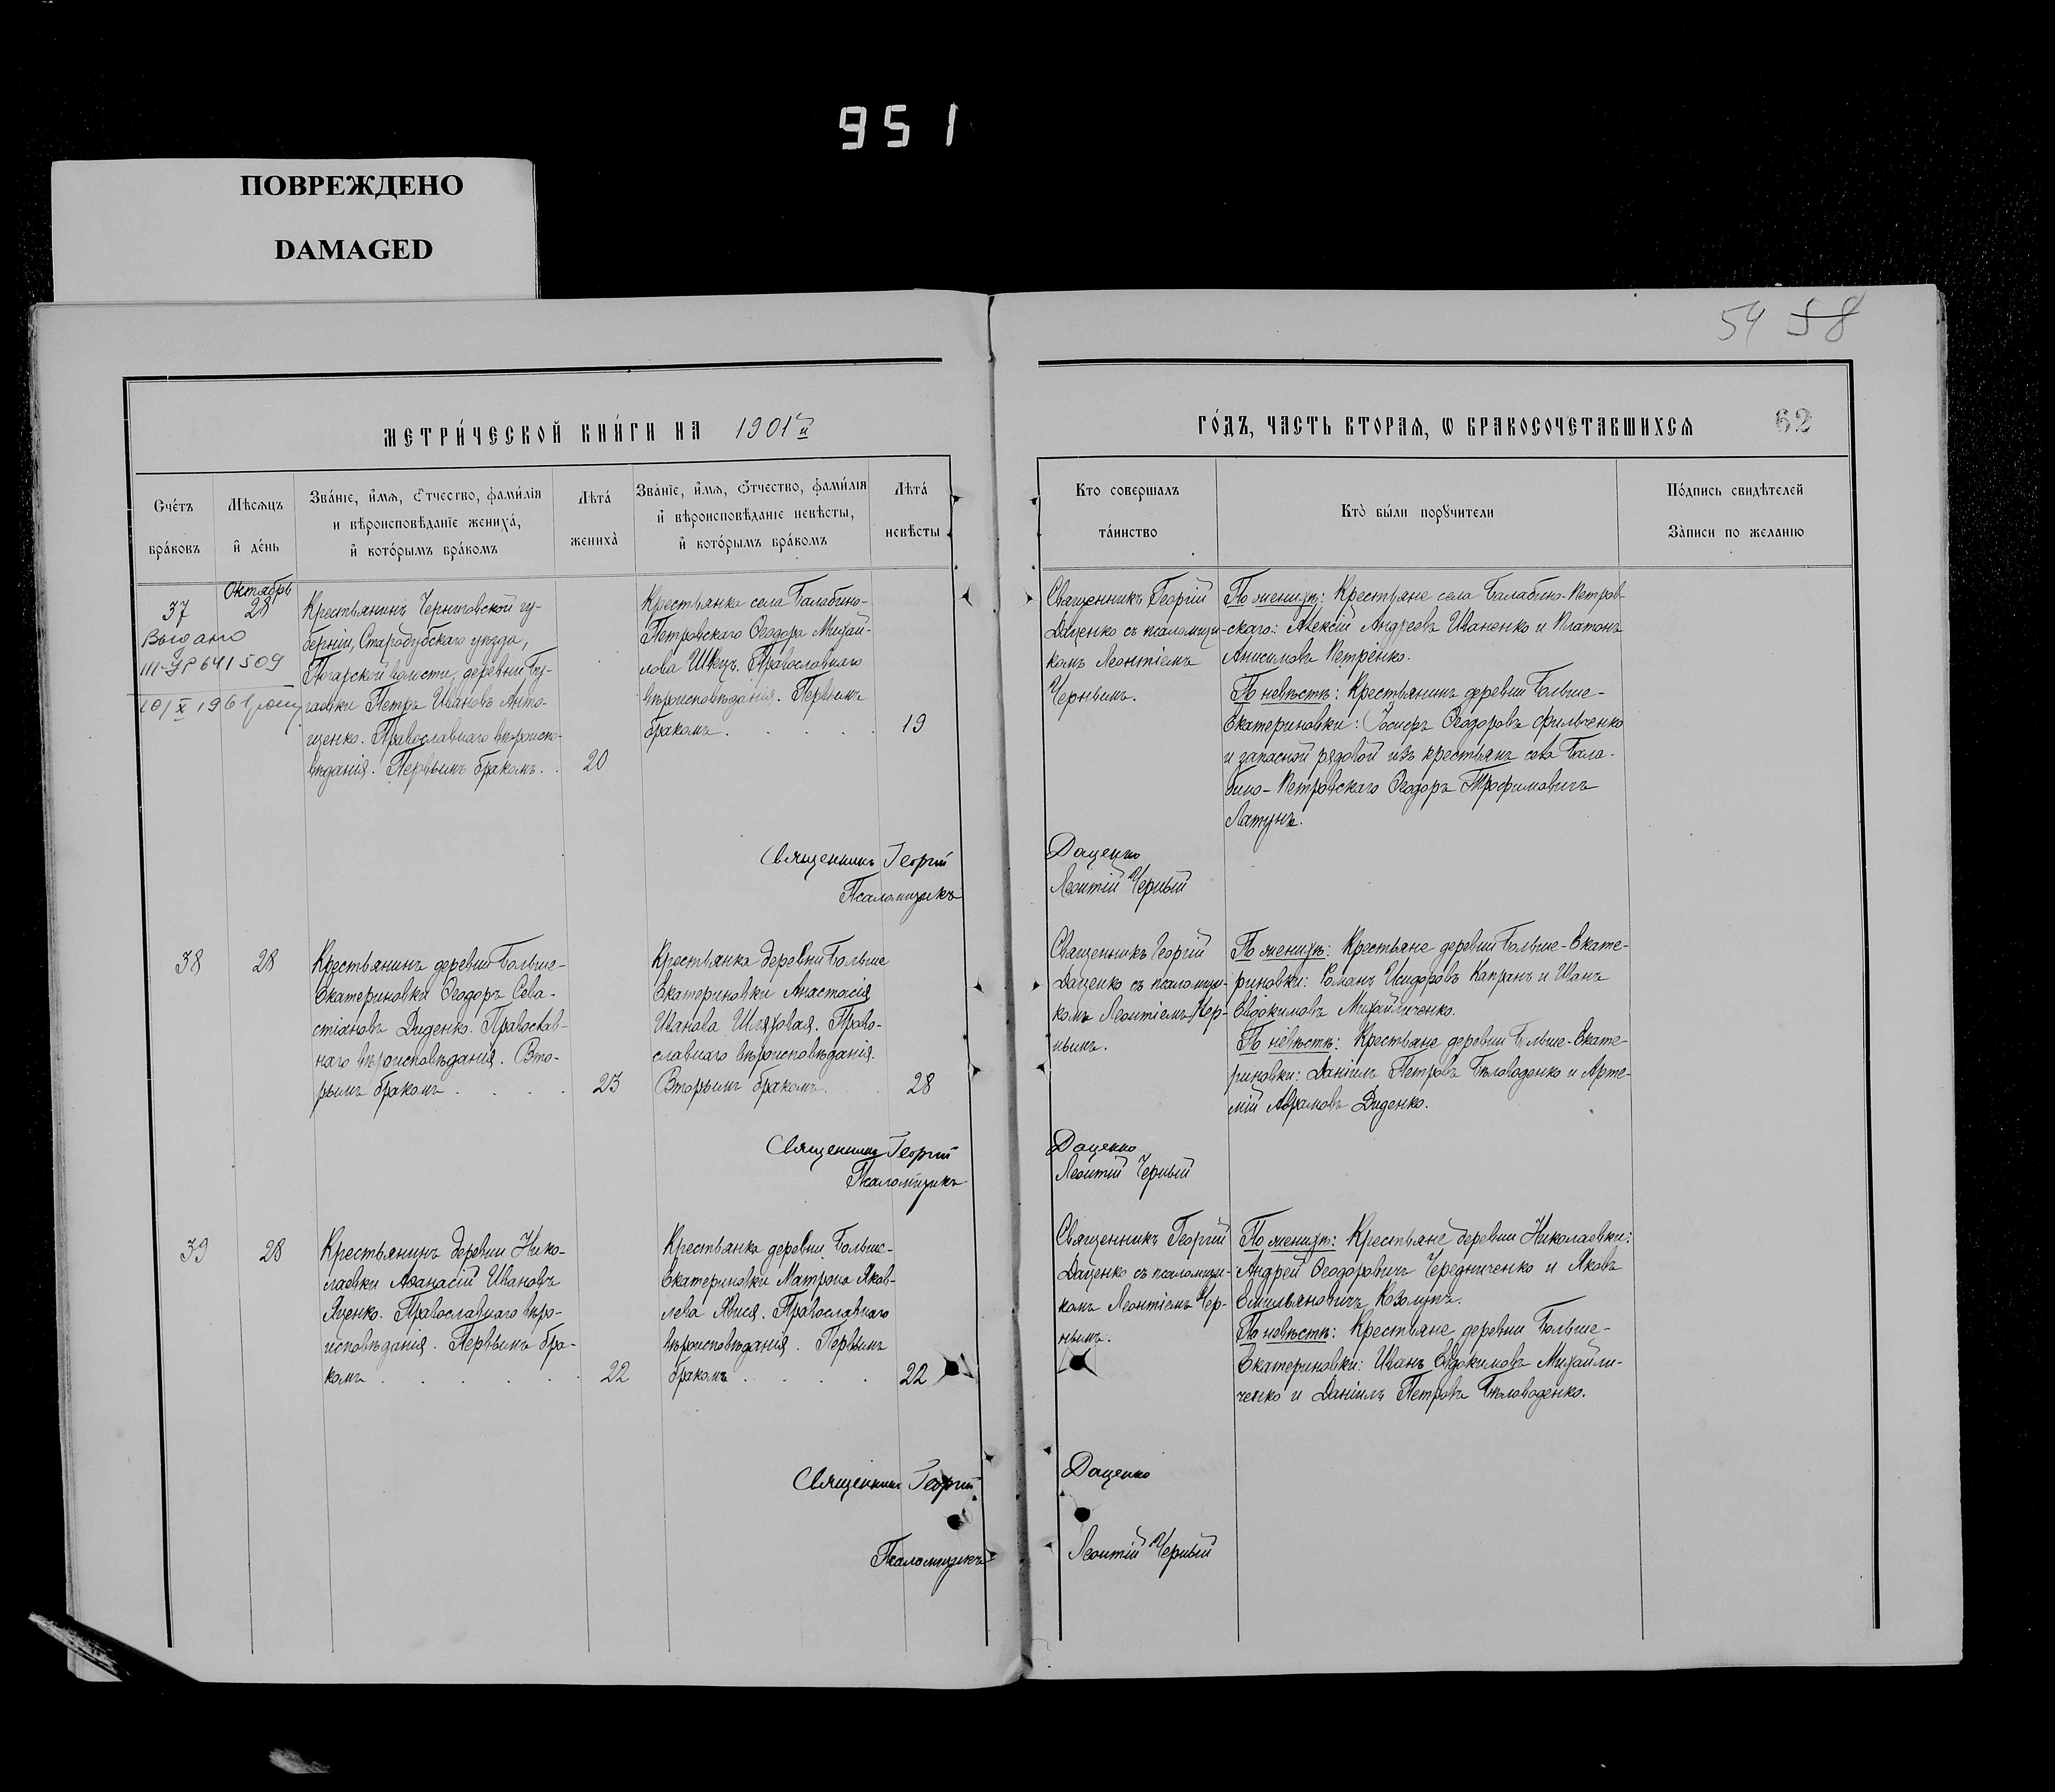 951
ПОВРЕЖДЕНО
DAMAGED
54 58
МЕТРИ́ЧЕСКОЙ КНИ́ГИ НА 1901й
ГО́ДЪ, ЧАСТЬ ВТОРАЯ, Ѡ БРАКОСОЧЕТАВШИХСЯ
62
Сче́тъ
бра́ковъ
Мѣсяцъ
и де́нь
Зва́нїе, имя, отчество, фами́лїя
и вѣроисповѣданїе жениха́,
и кото́рымъ бра́комъ
Лѣта́
жениха̀
Зва́нїе, имя, отчество, фами́лїя
и вѣроисповѣданїе невѣсты,
и кото́рымъ бра́комъ
Лѣта́
невѣсты
Кто совершалъ
та́инство
Кто̀ бы́ли порꙋчители
По́дпись свидѣтелей
За̀писи по желанію
Октябрь
37
28
Выдано
III-УР 641509
10/X 1961
Крестьянинъ Черниговской гу-
берніи, Стародубскаго уѣзда,
Погарской волости, деревни Бу-
гаевки Петръ Ивановъ Анто-
щенко. Православнаго вѣроиспо-
вѣданія. Первымъ бракомъ.
20
Крестьянка села Балабино-
Петровскаго Ѳеодора Михай-
лова Швецъ. Православнаго
вѣроисповѣданія. Первымъ
бракомъ
19
Священникъ Георгій
Даценко съ псаломщи-
комъ Леонтіемъ
Чернымъ.
По женихѣ: Крестьяне села Балабино-Петров-
скаго: Алексій Андреевъ Иваненко и Платонъ
Анисимовъ Петренко.
По невѣстѣ: Крестьянинъ деревни Больше-
Екатериновки: Іосифъ Ѳеодоровъ Фильченко
и запасной рядовой изъ крестьянъ села Бала-
бино-Петровскаго Ѳеодоръ Трофимовичъ
Латунъ.
Священникъ Георгій Даценко
Псаломщикъ Леонтій Черный
38
28
Крестьянинъ деревни Больше-
Екатериновки Ѳеодоръ Сева-
стіановъ Диденко. Православ-
наго вѣроисповѣданія. Вто-
рымъ бракомъ
23
Крестьянка деревни Больше
Екатериновки Анастасія
Иванова Шляховая. Право-
славнаго вѣроисповѣданія.
Вторымъ бракомъ
28
Священникъ Георгій
Даценко съ псаломщи-
комъ Леонтіемъ Чер-
нымъ.
По женихѣ: Крестьяне деревни Больше-Екате-
риновки: Романъ Исидоровъ Капранъ и Иванъ
Евдокимовъ Михайличенко.
По невѣстѣ: Крестьяне деревни Больше-Екате-
риновки: Даніилъ Петровъ Бѣловоденко и Арте-
мій Аврамовъ Диденко.
Священникъ Георгій Даценко
Псаломщикъ Леонтій Черный
39
28
Крестьянинъ деревни Нико-
лаевки Аѳанасій Ивановъ
Яценко. Православнаго вѣро-
исповѣданія. Первымъ бра-
комъ
22
Крестьянка деревни Больше-
Екатериновки Матрона Яков-
лева Православнаго
вѣроисповѣданія. Первымъ
бракомъ
22
Священникъ Георгій
Даценко съ псаломщи-
комъ Леонтіемъ Чер-
нымъ.
По женихѣ: Крестьяне деревни Николаевки:
Андрей Ѳеодоровичъ Чередниченко и Яковъ
Емильяновичъ Козолупъ.
По невѣстѣ: Крестьяне деревни Больше-
Екатериновки: Иванъ Евдокимовъ Михайли-
ченко и Даніилъ Петровъ Бѣловоденко.
Священникъ Георгій Даценко
Псаломщикъ Леонтій Черный